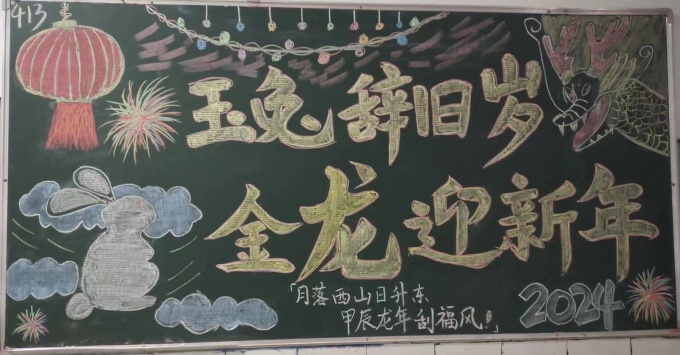 413
玉兔辞旧岁
金龙迎新年
「月落西山日升东
甲辰龙年刮福风!」
2024